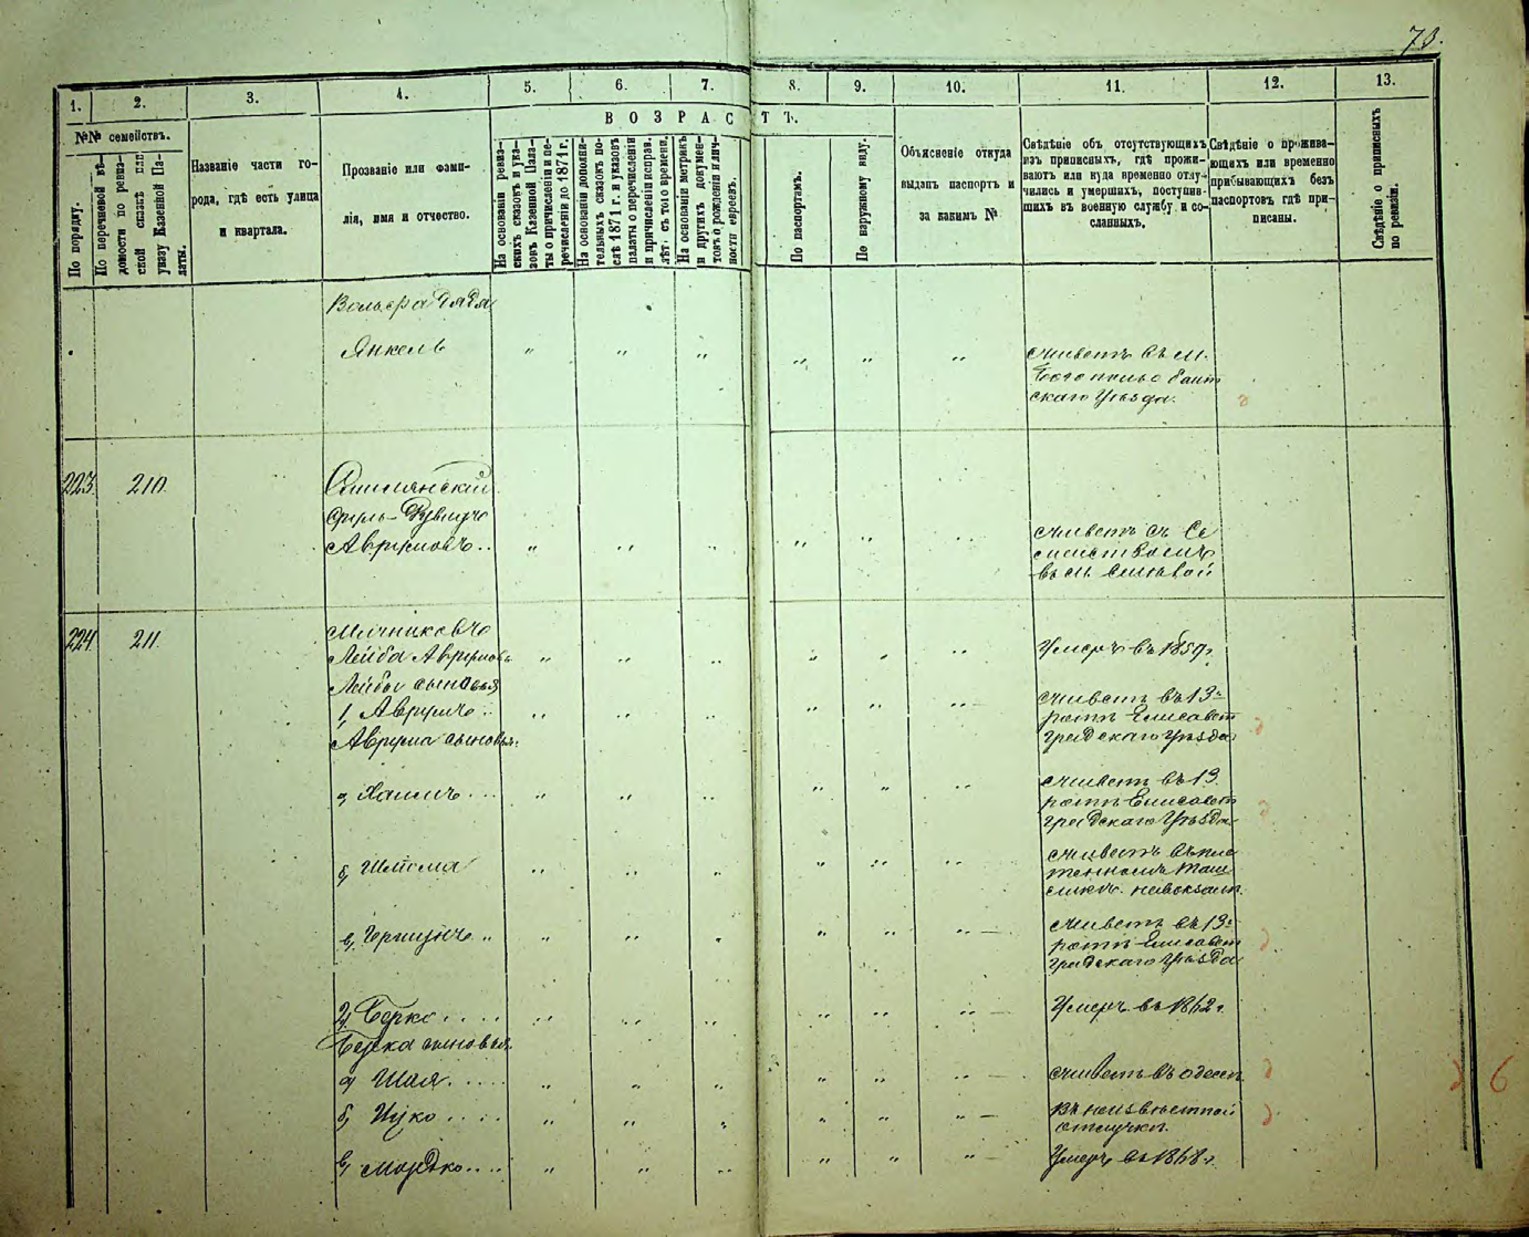 73.
1. 2. 3. 4. 5. 6. 7. 8. 9. 10. 11. 12. 13.
№№ семействъ.
По порядку.
По перечневой вѣ-
домости по ревиз-
ской сказкѣ или
указу Казенной Па-
латы.
Названіе части го-
рода, гдѣ есть улица
и квартала.
Прозваніе или фами-
лія, имя и отчество.
ВОЗРАСТЪ.
На основаніи ревиз-
скихъ сказокъ и ука-
зовъ Казенной Пала-
ты о причисленіи и пе-
речисленіи до 1871 г.
На основаніи дополни-
тельныхъ сказокъ по-
слѣ 1871 г. и указовъ
палаты о перечисленіи
и причисленіи исправ.
лѣт. съ того времени.
На основаніи метрикъ
и другихъ докумен-
товъ о рожденіи и лич-
ности евреевъ.
По паспортамъ.
По наружному виду.
Объясненіе откуда
выданъ паспортъ и
за какимъ №
Свѣдѣніе объ отсутствующихъ
изъ приписныхъ, гдѣ прожи-
ваютъ или куда временно отлу-
чились и умершихъ, поступив-
шихъ въ военную службу и со-
сланныхъ.
Свѣдѣніе о прожива-
ющихъ или временно
прибывающихъ безъ
паспортовъ гдѣ при-
писаны.
Свѣдѣніе о приписныхъ
по ревизіи.
дядя
Янкель " " " " " " живетъ въ м.
скаго уѣзда.
223 210
Аврумовъ.. " " " " " живетъ съ се
мействомъ
въ м.
224 211
Лейба Аврумовъ " " " " " " умеръ въ 1859 г.
Лейбы сыновья
1, Аврумъ.. " " " " " " живетъ въ 13й
ротѣ Елисавет
градскаго уѣзда
Аврума сыновья:
а, Хаимъ... " " " " " " живетъ въ 13.
ротѣ Елисавет
градскаго уѣзда
б, Шлioма " " " " " " живетъ
в, Гершунъ.. " " " " " " живетъ въ 13й
ротѣ Елисавет
градскаго уѣзда
2, Берко.... " " " " " " умеръ въ 1862 г.
Берка сыновья
а, Шая..... " " " " " " живетъ въ одессѣ
б, Ицко.... " " " " " " въ неизвѣстной
отлучкѣ.
в, Мордко.... " " " " " " умеръ въ 1868 г.
6